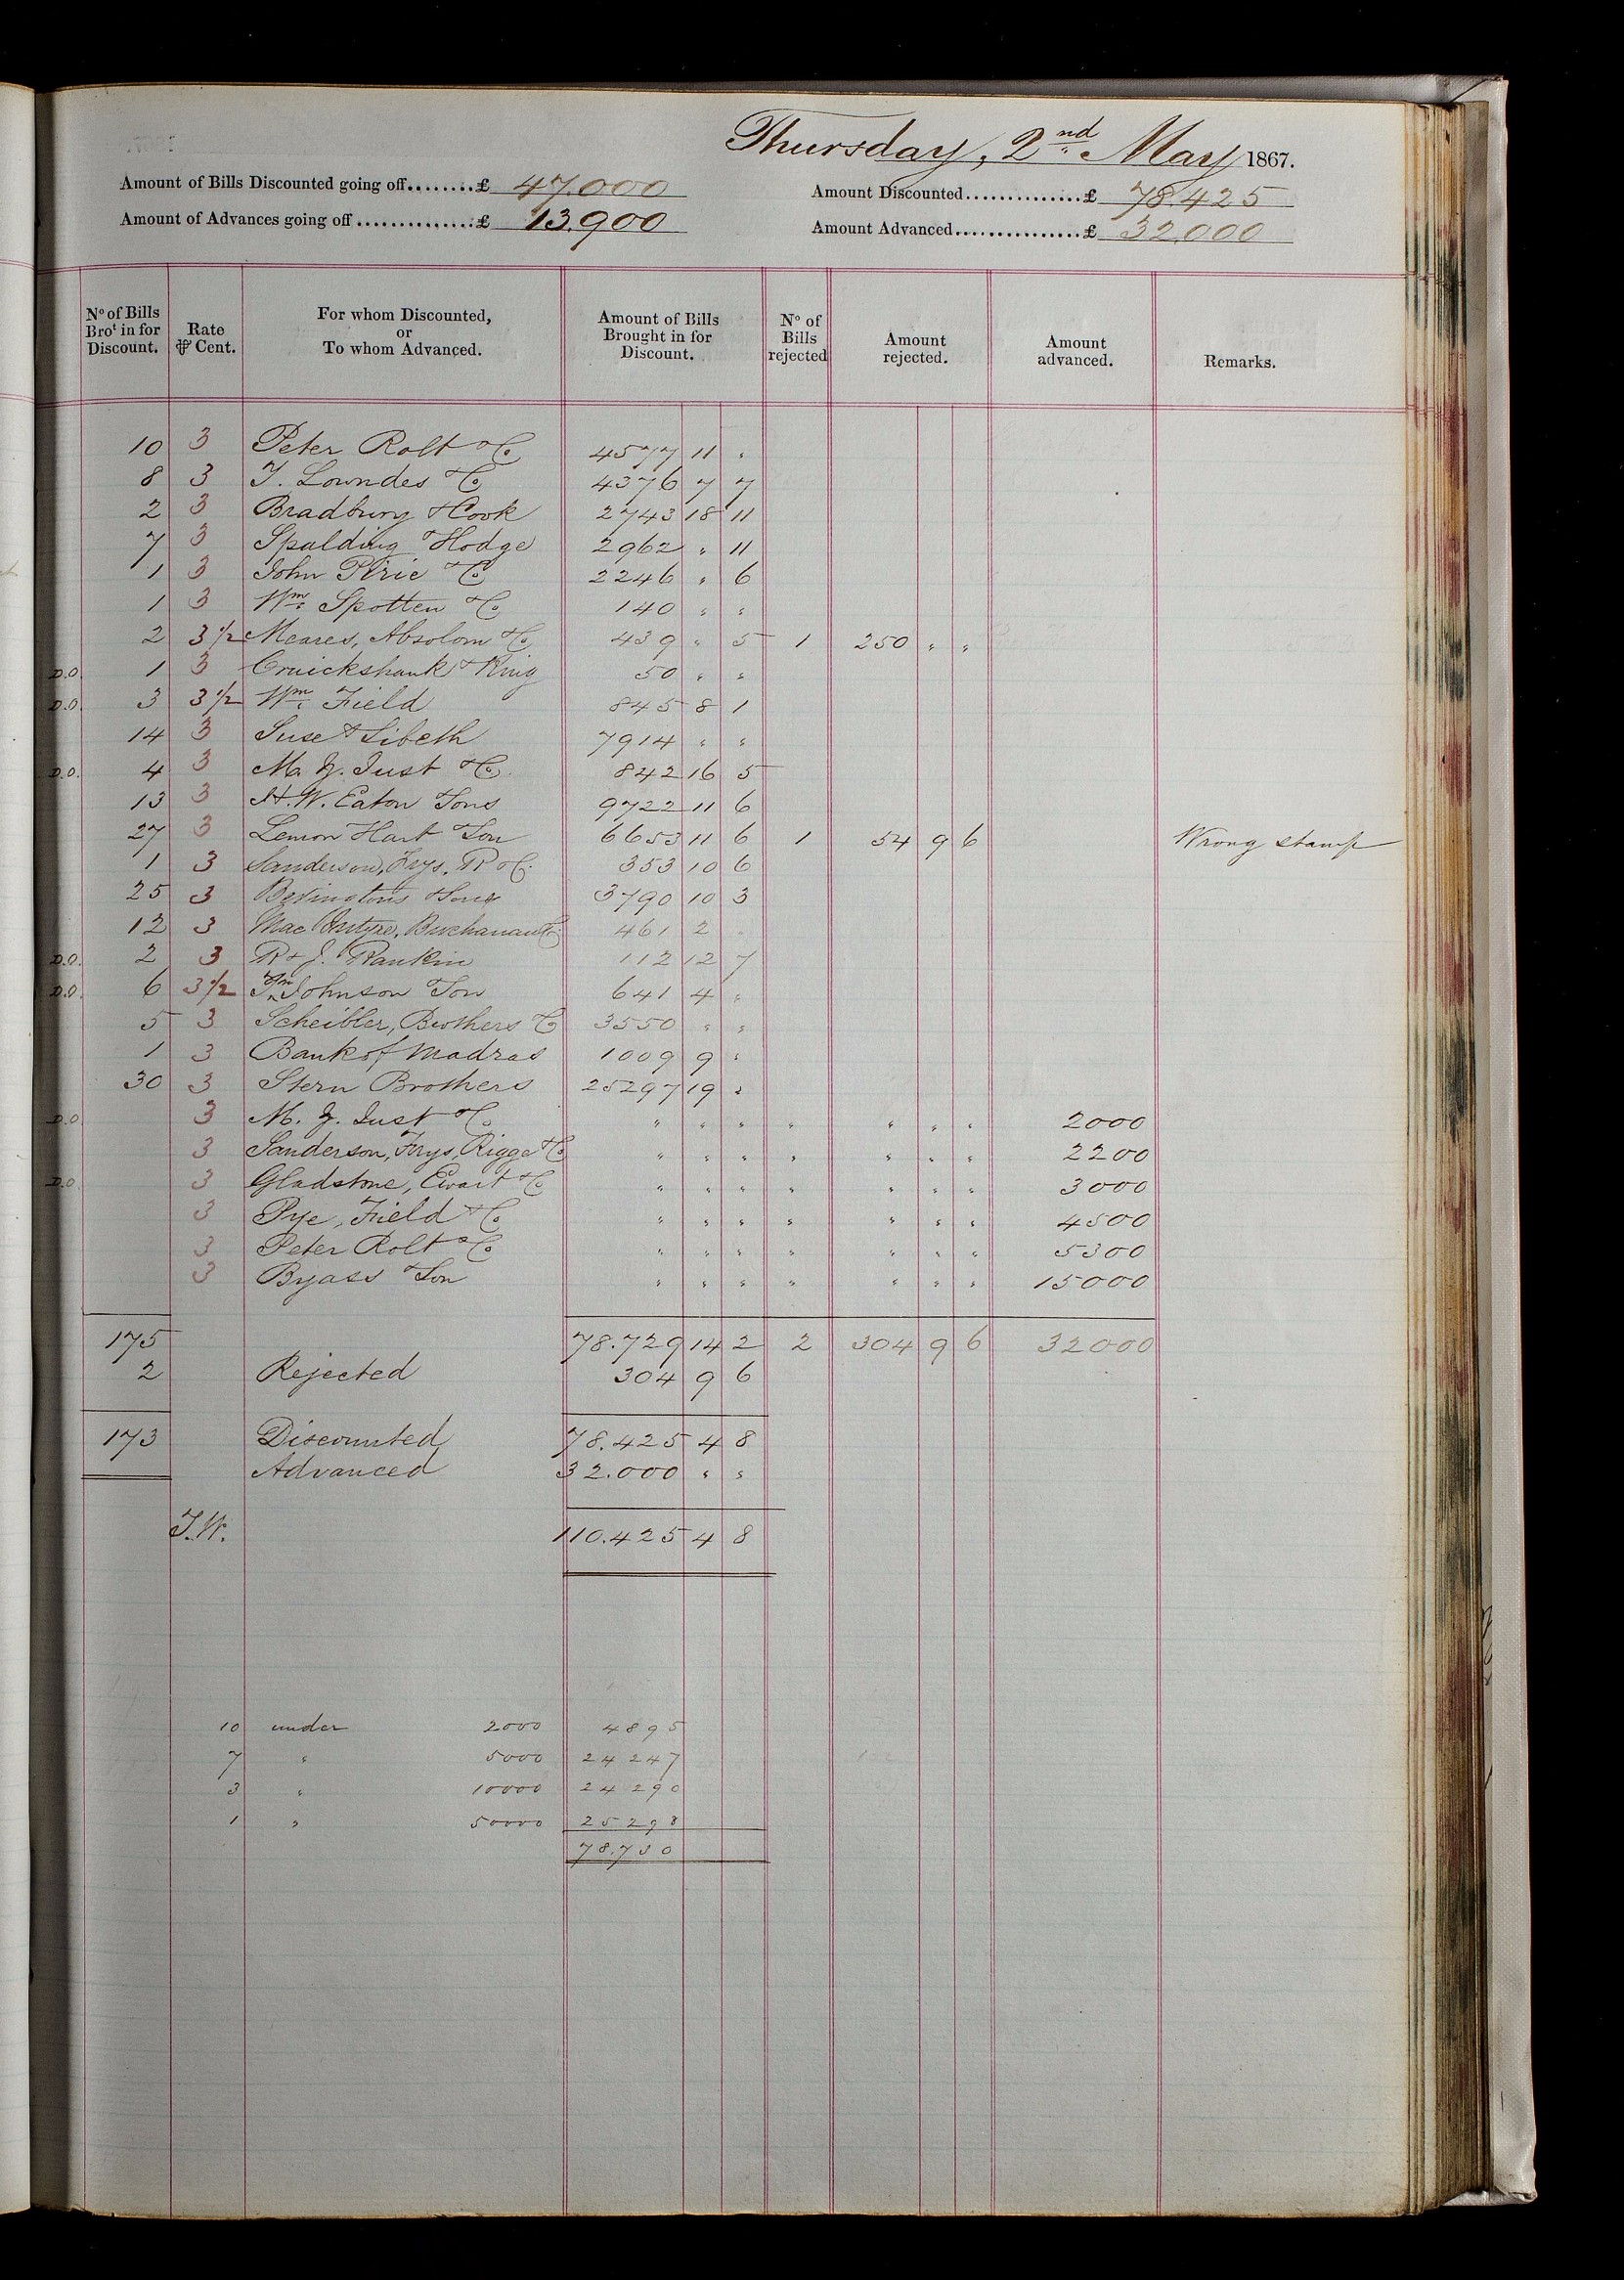 Thursday, 2nd May 1867.
Amount of Bills Discounted going off........£ 47.000
Amount of Advances going off..............£ 13.900
Amount Discounted..............£ 78.425
Amount Advanced................£ 32.000
No of Bills Brot in for Discount. | Rate ⅌ Cent. | For whom Discounted, or To whom Advanced. | Amount of Bills Brought in for Discount. | No of Bills rejected | Amount rejected. | Amount advanced. | Remarks.
10 3 Peter Rolt & Co 4577 11 "
8 3 T. Lowndes & Co 4376 7 7
2 3 Bradbury & Cook 2743 18 11
7 3 Spalding & Hodge 2962 " 11
1 3 John Pirie & Co 2246 " 6
1 3 Wm Spotten & Co 140 " "
2 3 1/2 Meares, Absolom & Co 439 " 5 1 250 " "
D.O. 1 3 Cruickshank & King 50 " "
D.O. 3 3 1/2 Wm Field 845 8 1
14 3 Suse & Sibeth 7914 " "
D.O. 4 3 M. J. Just & Co. 842 16 5
13 3 H. W. Eaton & Sons 9722 11 6
27 3 Lemon Hart & Son 6653 11 6 1 54 9 6 Wrong stamp
1 3 Sanderson, Frys, R & Co. 353 10 6
25 3 Bevingtons & Sons 3790 10 3
12 3 MacIntyre, Buchanan & Co 461 2 "
D.O. 2 3 R & J. Rankin 112 12 7
D.O. 6 3 1/2 Johnson & Son 641 4 "
5 3 Scheibler, Brothers & Co 3550 " "
1 3 Bank of Madras 1009 9 "
30 3 Stern Brothers 25297 19 "
D.O 3 M. J. Just & Co. " " " " " " " 2000
3 Sanderson, Frys, Rigge & Co " " " " " " " 2200
D.O 3 Gladstone, Ewart & Co " " " " " " " 3000
3 Pye, Field & Co " " " " " " " 4500
3 Peter Rolt & Co " " " " " " " 5300
3 Byass & Son " " " " " " " 15000
175 78.729 14 2 2 304 9 6 32000
2 Rejected 304 9 6
173 Discounted 78.425 4 8
Advanced 32.000 " "
J.W. 110.425 4 8
10 under 2000 4895
7 " 5000 24247
3 " 10000 24290
1 " 50000 25298
78.730